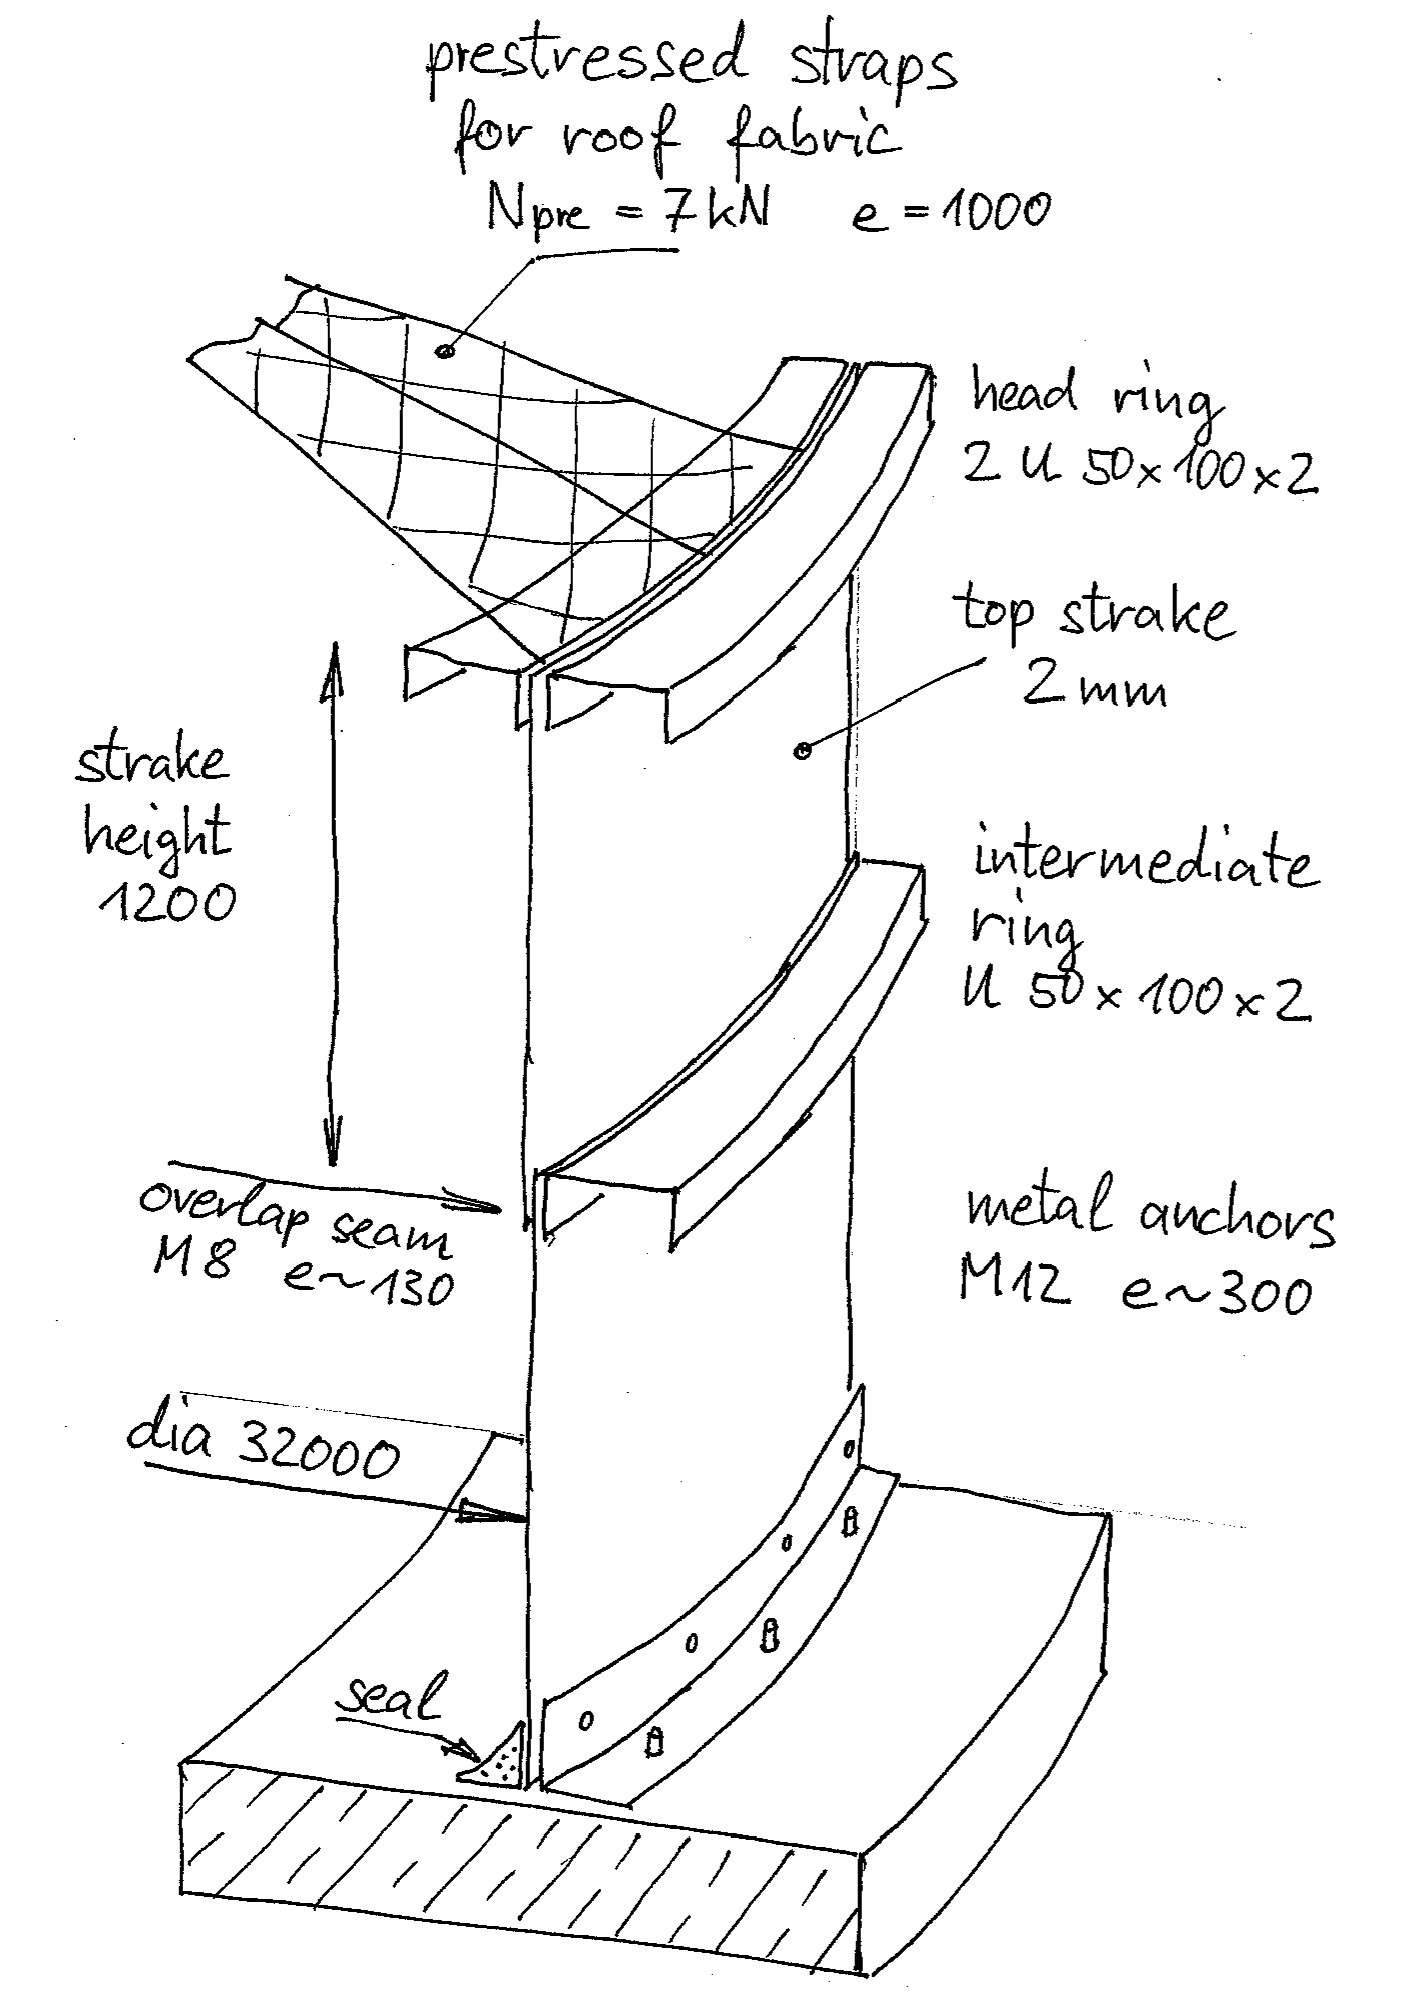 prestressed straps
for roof fabric
Npre = 7 kN e = 1000
head ring
2 U 50 x 100 x 2
top strake
2 mm
strake
height
1200
intermediate
ring
U 50 x 100 x 2
overlap seam
M8 e ~ 130
metal anchors
M12 e ~ 300
dia 32000
seal